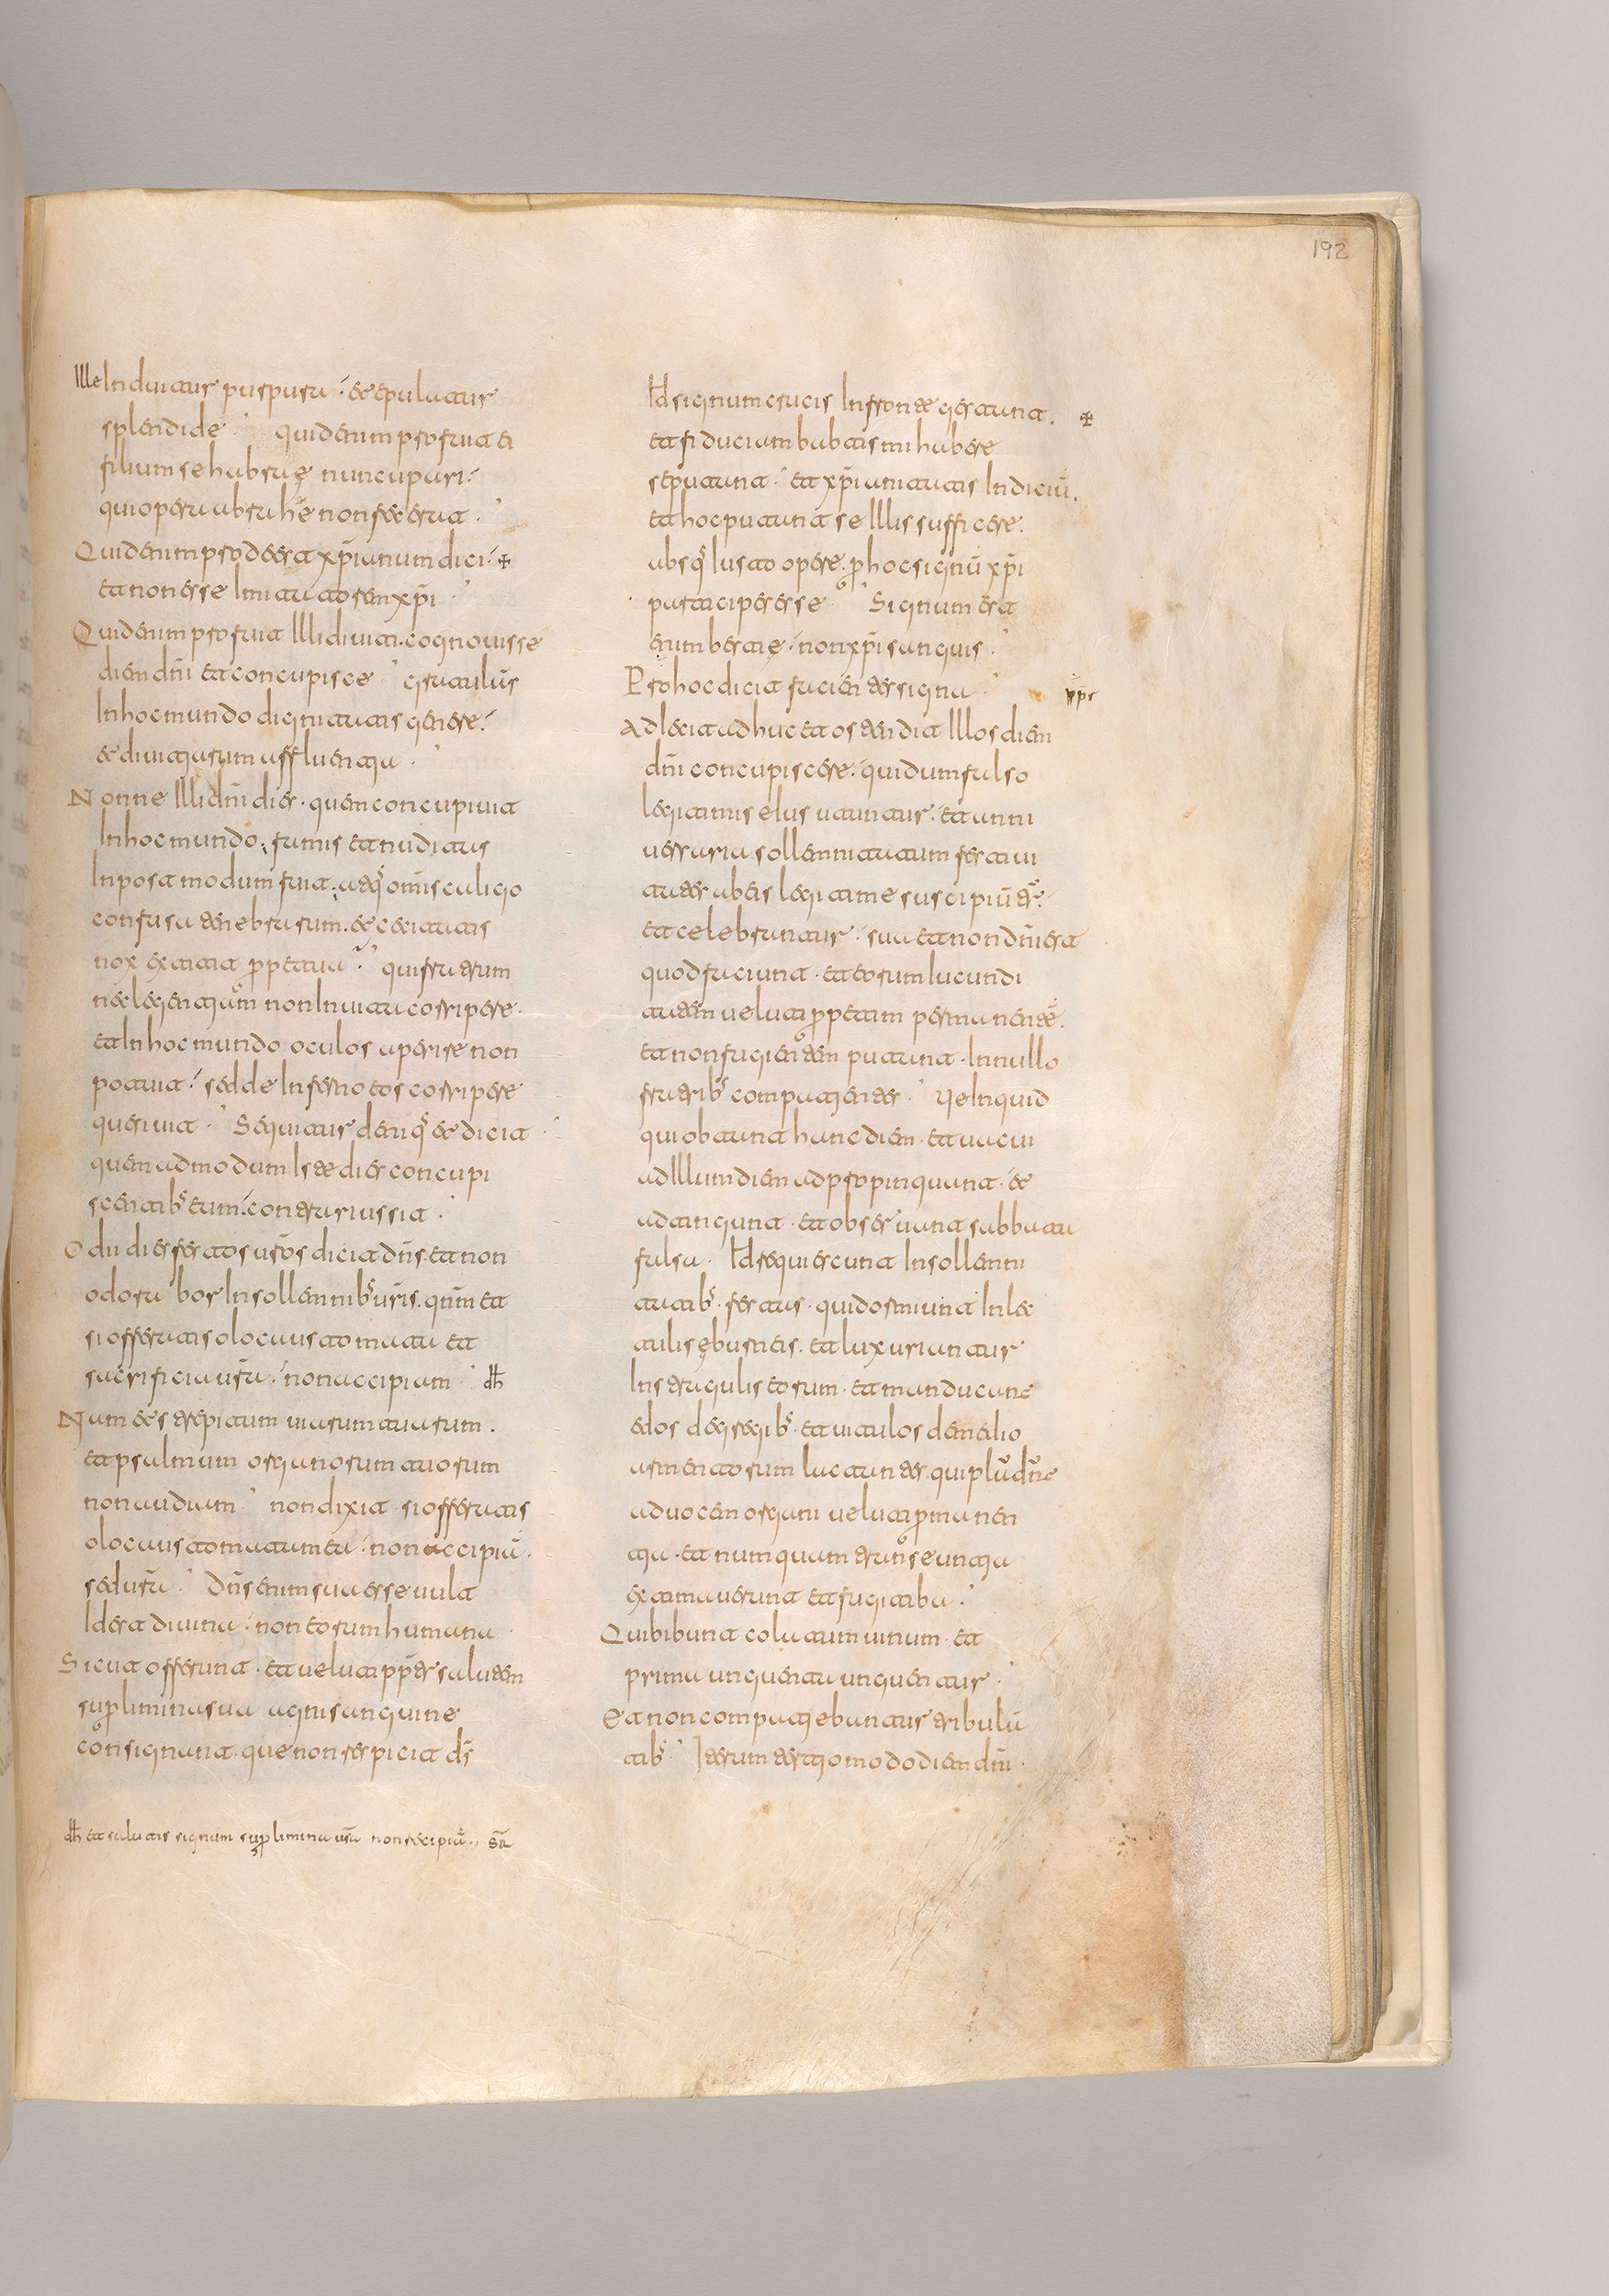 Ille Induitur purpura. et epulatur
splendide. quid enim profuit ei
filium se habrae nuncupari.
qui opera abrahe non fecerat.
Quid enim prodest xp̄ianum dici.
et non esse Imitatorem xp̄i
Quid enim profuit Illi diuiti. cognouisse
diem dn̄i et concupisce gratulan̄s
In hoc mundo dignitatis genere.
et diuitiarum affluentia.
Nonne Illi dn̄i dies. quem concupiuit
In hoc mundo. famis et nuditatis
In postmodum fuit. atqꝫ om̄is caligo
confusa tenebrarum. et cecitatis
nox extitit ꝑpetua. qui fratrum
neclegentiam non In uita corripere.
et In hoc mundo oculos aperire non
potuit. sed de Inferno eos corripere
queriuit. Sequitur deniqꝫ et dicit
quemadmodum Iste dies concupi
scentibꝫ eum. contrarius sit.
Odii dies festos ur̄os dicit dn̄s. et non
odorabor In sollemnibꝫ ur̄is. qn̄m et
si offeratis olocaustomata et
sacrificia ur̄a. non accipiam dh
Nam et strepitum uiarum tuarum.
et psalmum organorum tuorum
non audiam. non dixit si offeratis
olocaustomatum ea. non accipiā.
sed ur̄a. Dn̄s enim sua esse uult
Id est diuina. non eorum humana
Sicut offerunt. et uelut pp̄ter salutem
suꝑ limina sua agni sanguine
consignant. que non respicit ds̄
dh et salutis signum suꝑ limina ur̄a non recipiā.
Id signum crucis In fronte gestant.
et fiducium babtismi habere
se putant. et xp̄ianitatis Indiciū.
et hoc putant se Illis sufficere.
absqꝫ Iusto opere. ꝑ hoc signū xp̄i
participes esse Signum est
enim bestie. non xp̄i sanguis.
Pro hoc dicit facientes signa
Adlecit adhuc et ostendit Illos diem
dn̄i concupiscere. qui dum falso
legitimis eius utuntur. et anni
uersaria sollemnitatum festiui
tates ab eis legitime suscipiūtur.
et celebrantur. sua et non dn̄i est
quod faciunt. et eorum Iucundi
tatem uelut ꝑpetim permanente.
et non fugientem putant. In nullo
fratribꝫ compatientes. Relinquid
qui obtant hunc diem. et uacui
ad Illum diem adpropinquant. et
adtingunt. et obseruant sabbata
falsa. Id requiescunt In sollemni
tatibꝫ festis. qui dormiunt In lec
tulis ęburneis. et luxuriantur
In stragulis eorum. et manducant
edos de gregibꝫ. et uitulos de medio
armentorum lactantes. qui plūdūnt
ad uocem organi uelut ꝑmanen
tia. et num quam transeuntia
extimauerunt et fugitiba.
Qui bibunt colatum uinum. et
prima unguenta unguentur.
Et non compatiebantur tribulan̄
tibꝫ. Iterum tertio modo diem dn̄i.
192